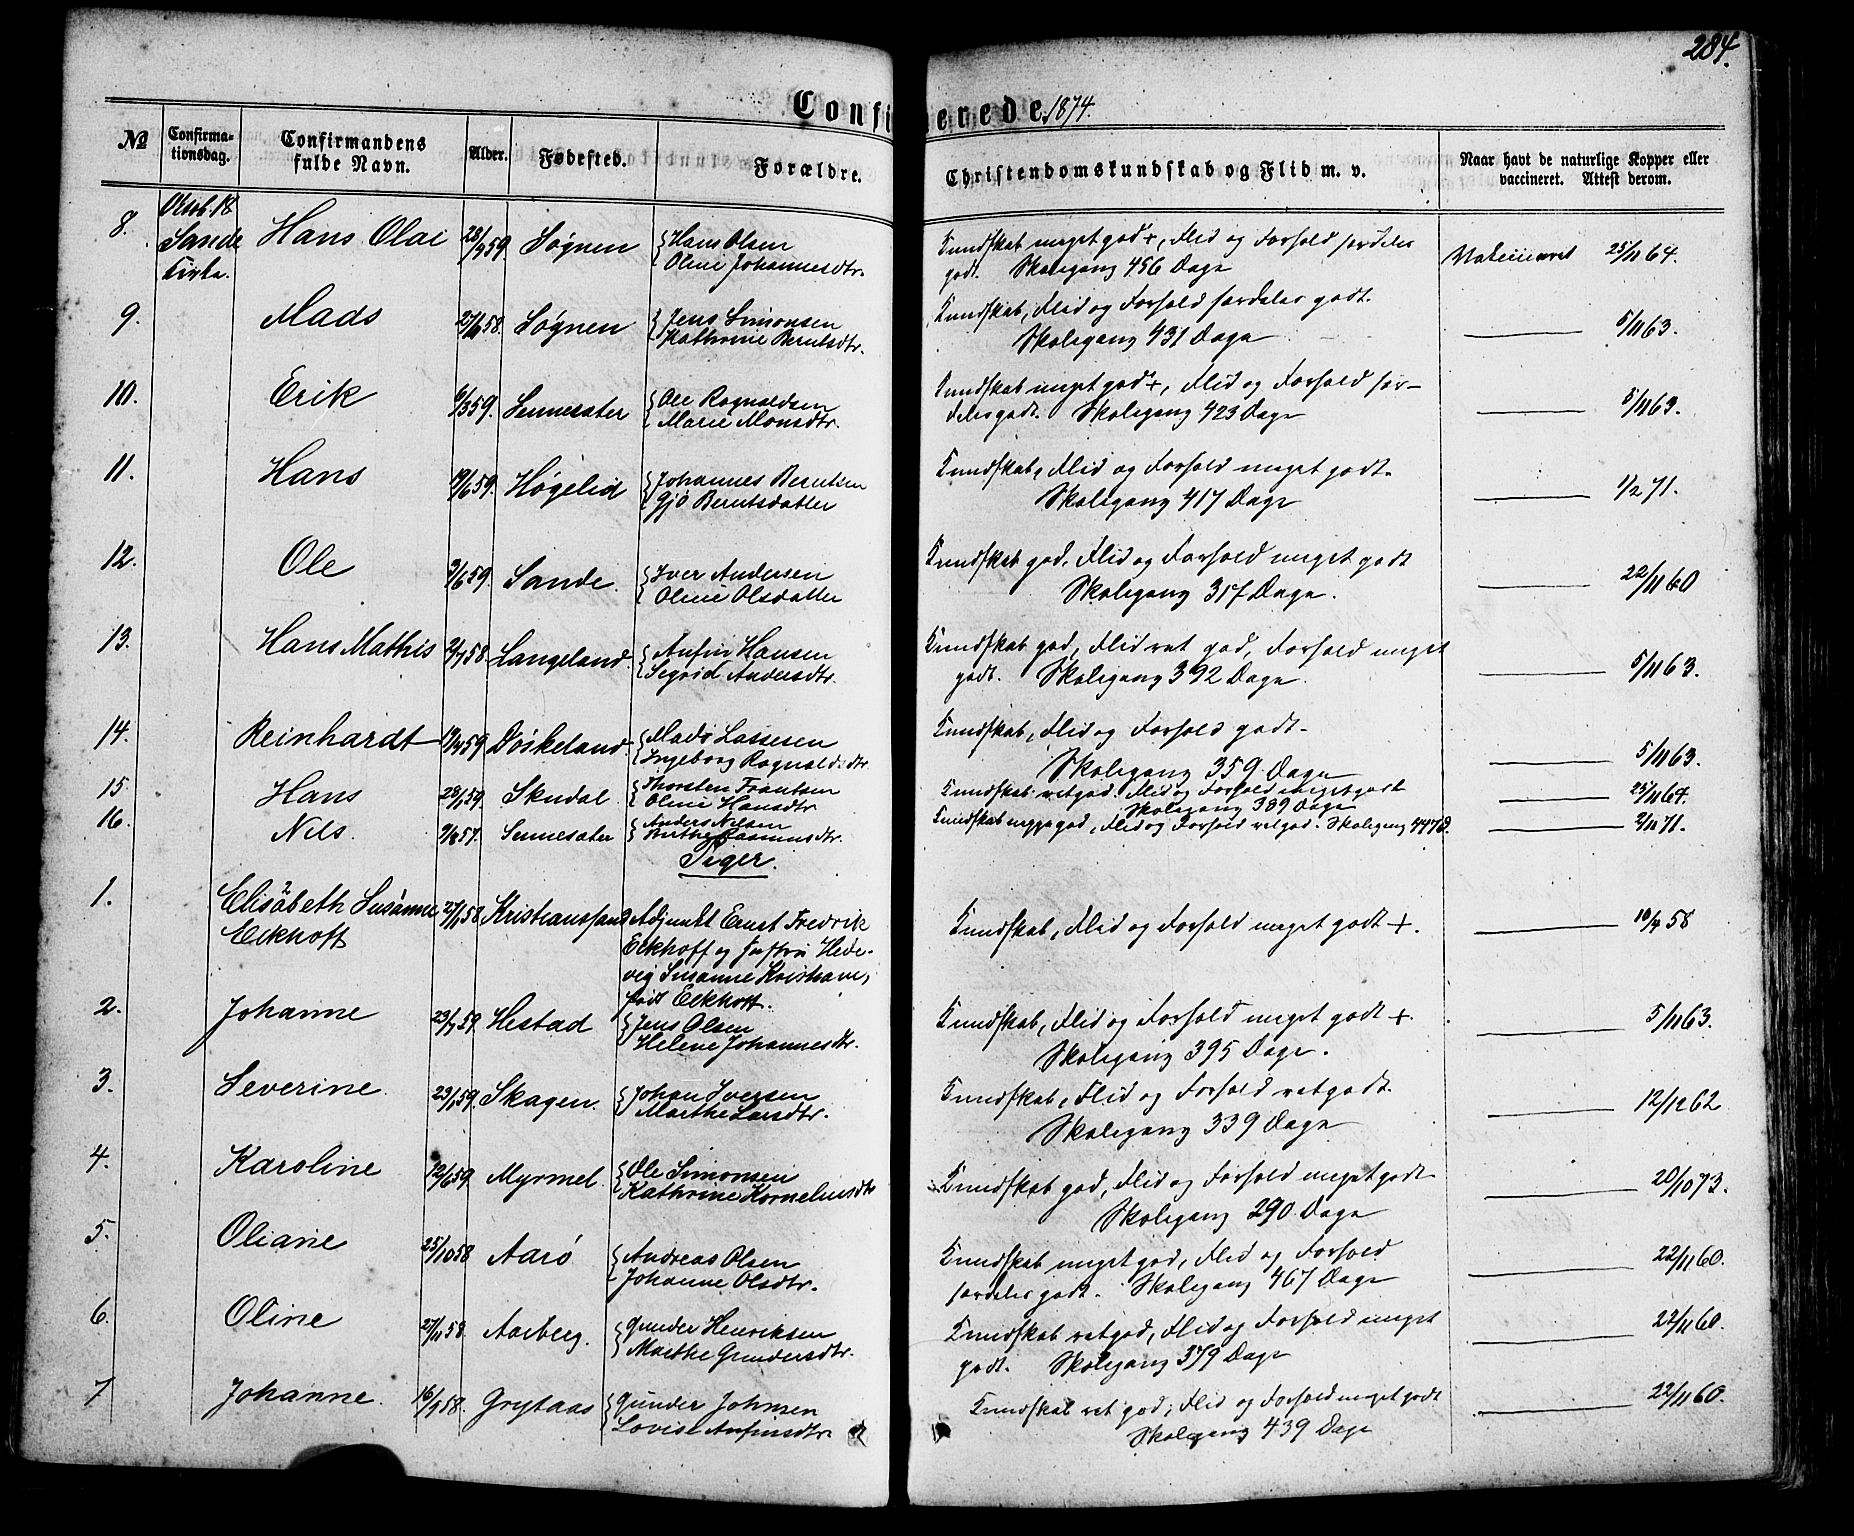 284.
Confirmerede 1874.
No Confirmationsdag. Confirmandens fulde Navn. Alder. Fødested. Forældre. Christendomskundskab og Flid m. v. Naar havt de naturlige Kopper eller vaccineret. Attest derom.
Oktob. 18 Sande Kirke.
8. Hans Olai 59. Søgnen Hans Olsen Kundskab meget god +, Flid og Forhold særdeles Vakcineret 25/11 64.
Oline Johannesdtr. godt. Skolegang 456 Dage
9. Mads 58. Søgnen Jens Simonsen Kundskab, Flid og Forhold særdeles godt. 5/11 63.
Kathrine Berntsdtr. Skolegang 431 Dage
10. Erik 6/3 59. Sennesæter Ole Ragnaldsen Kundskab meget god +, Flid og Forhold sær- 5/11 63.
Marie Monsdtr. deles godt. Skolegang 423 Dage
11. Hans 19/6 59. Høgelid Johannes Berntsen Kundskab, Flid og Forhold meget godt. 1/2 71.
Gjø Berntsdatter Skolegang 417 Dage
12. Ole 9/6 59. Sande. Iver Andersen Kundskab god, Flid og Forhold meget godt 22/11 60
Oline Olsdatter Skolegang 317 Dage.
13. Hans Mathis 2/7 58. Langeland. Anfin Hansen Kundskab god, Flid ret god, Forhold meget 5/11 63.
Sigrid Andersdtr. godt. Skolegang 392 Dage.
14. Reinhardt 59. Døskeland. Mads Lassesen Kundskab, Flid og Forhold godt. 5/11 63.
Ingeborg Ragnaldsdtr. Skolegang 359 Dage
15. Hans 28/1 59. Skudal. Thorsten Frantsen Kundskab ret god. Flid og Forhold meget godt 25/11 64.
Oline Hansdtr Skolegang 389 Dage
16. Nils. 9/8 57. Sennesæter Anders Nilsen Kundskab god, Flid og Forhold ret god. Skolegang 447 D. 2/10 71.
Birthe Rasmusdtr.
Piger.
1. Elisabeth Susanne 27/1 58. Kristianssand Adjunkt Ernst Fredrik Kundskab, Flid og Forhold meget godt +. 58
Eckhoff Eckhoff og Hustru Hede-
vig Susanne Kristiane,
født Eckhoff.
2. Johanne 23/7 59. Hestad Jens Olsen Kundskab, Flid og Forhold meget godt +. 5/11 63.
Helene Johannesdtr. Skolegang 395 Dage.
3. Severine. 23/1 59. Skagen. Johan Iversen Kundskab, Flid og Forhold ret godt. 12/12 62
Marthe Larsdtr. Skolegang 339 Dage
4. Karoline 12/6 59. Myrmel. Ole Simonsen Kundskab god, Flid og Forhold meget godt 20/10 73.
Kathrine Korneliusdtr Skolegang 290 Dage
5. Oliane 25/10 58 Aarø Andreas Olsen Kundskab meget god, Flid og Forhold 22/11 60.
Johanne Olsdtr. særdeles godt. Skolegang 467 Dage
6. Oline 27/11 58. Aarberg. Gunder Henriksen Kundskab ret god, Flid og Forhold meget 22/11 60.
Marthe Gundersdtr. godt. Skolegang 379 Dage
7 Johanne. 16/9 58. Grytaas Gunder Johnsen Kundskab ret god, Flid og Forhold meget godt 22/11 60.
Lovise Anfinsdtr. Skolegang 439 Dage